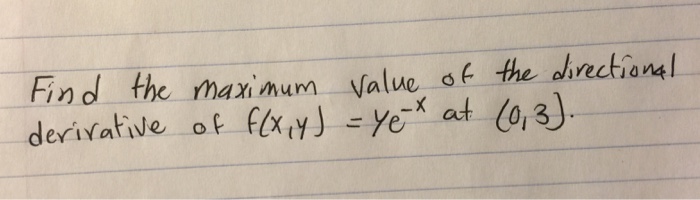 Find the maximum value of the directional
derivative of f(x,y) = ye^-x at (0,3).